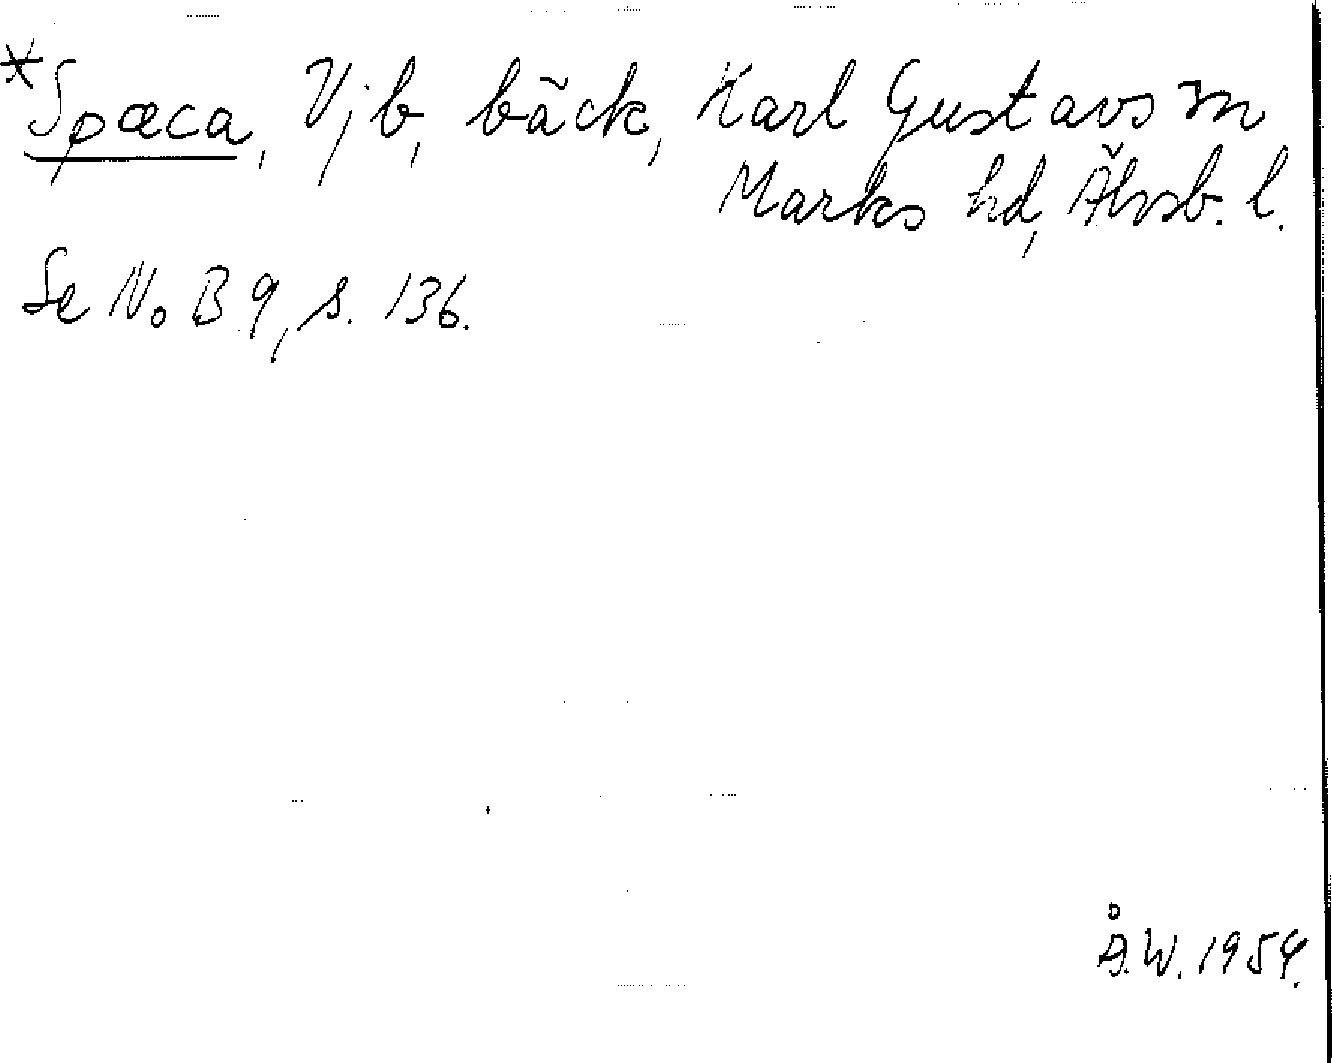 *Spæca, Vjb, bäck, Karl Gustavs sn
Marks hd, Älvsb. l.
Se No B 9, s. 136.
Å.W. 1954.